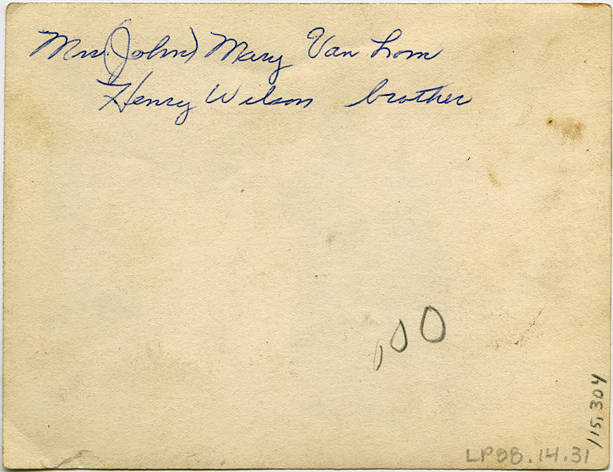 Mrs. (John) Mary Van Lom
Henry Wilson brother
,00
LP88.14.31
115,304